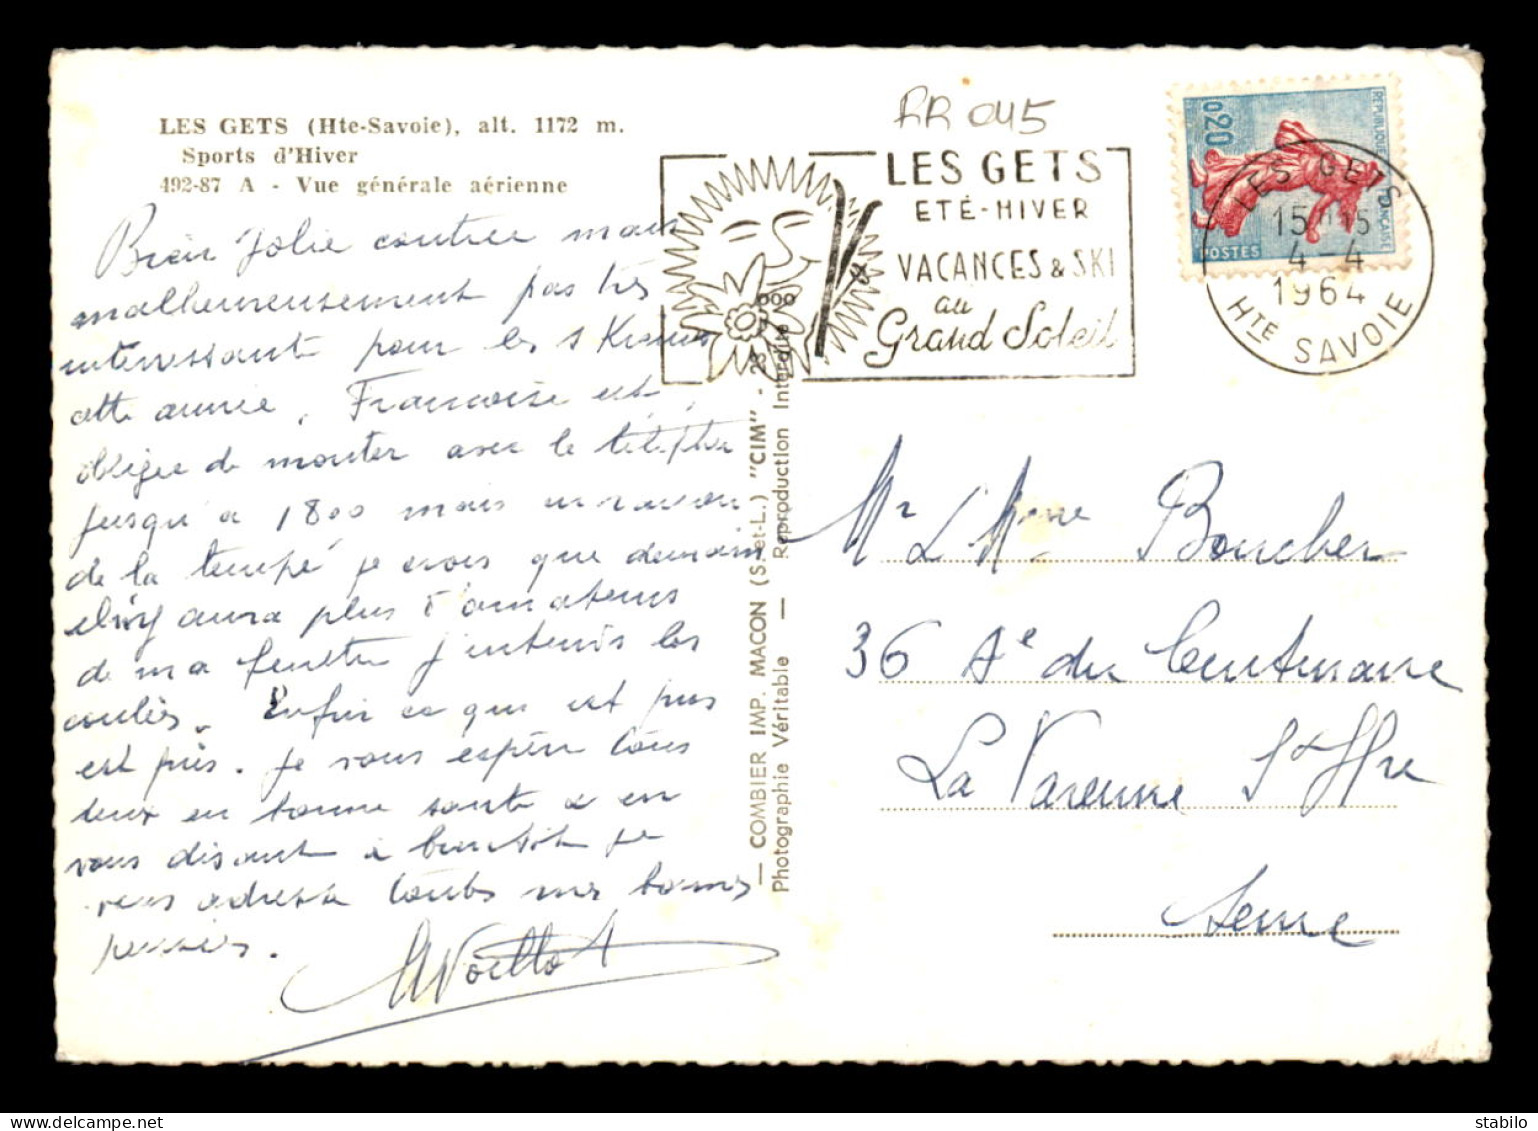 LES GETS (Hte-Savoie), alt. 1172 m.
Sports d'Hiver
492-87 A - Vue générale aérienne
Bien Jolie contrée mais
malheureusement pas très
intéressante pour les skieurs
cette année. Françoise est
obligée de monter avec le
jusqu'à 1800 mais en raison
de la tempé je crois que demain
aura plus d'amateurs
de ma fenêtre j'entends les
coulées. Enfin ce qui est pris
est pris. Je vous espère tous
deux en bonne santé & en
vous disant à bientôt je
vous adresse toutes mes bonnes
pensées.
RR 045
LES GETS
ETÉ-HIVER
VACANCES & SKI
au
Grand Soleil
0,20
REPUBLIQUE FRANÇAISE
POSTES
LES GETS
15H15
4-4
1964
HTE SAVOIE
— COMBIER IMP. MACON (S.-et-L.) "CIM" -
Photographie Véritable — Reproduction Interdite
Mr & Mme Boucher
36 Ae du Centenaire
La Varenne St Hre
Seine
delcampe.net
stelou